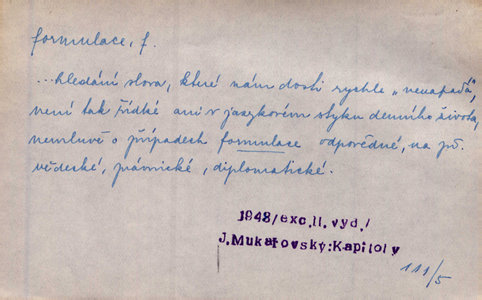 formulace, f.
...hledání slova, které nám dosti rychle „nenapadá",
není tak řídké ani v jazykovém styku denního života,
nemluvě o případech formulace odpovědné, na př.
vědecké, právnické, diplomatické.
1948/exc.II.vyd./
J.Mukařovský:Kapitoly
111/5